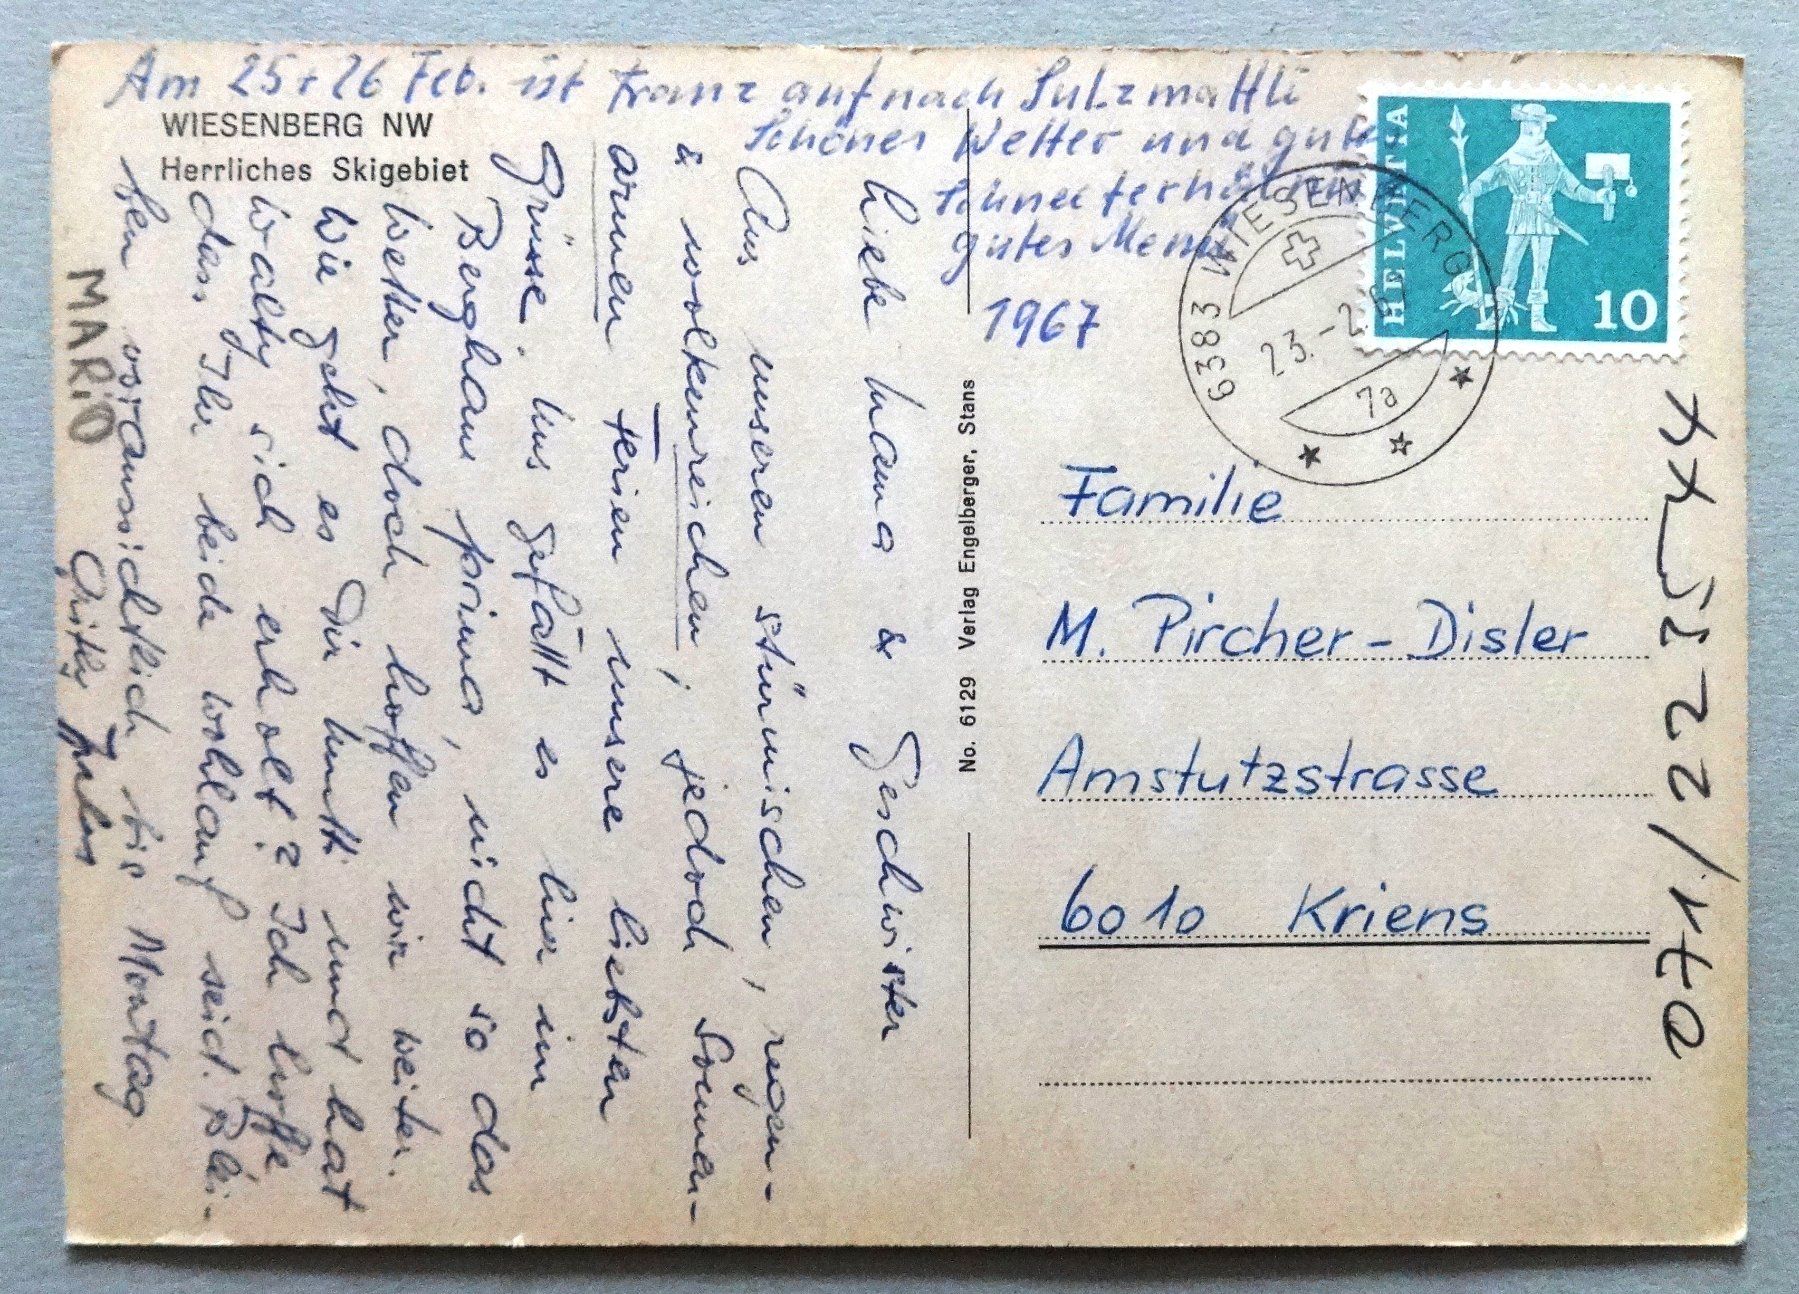 Am 25 + 26 Feb. ist Franz auf nach Sulzmattli
Schönes Wetter und gute
Schneeverhältnisse
gutes Menu
1967
WIESENBERG NW
Herrliches Skigebiet
Liebe Mama & Geschwister
Aus unseren stürmischen, regen-
& wolkenreichen, jedoch Sonnen-
armen Ferien unsere liebsten
Grüsse. Uns gefällt es hier im
Berghaus prima, nicht so das
Wetter, doch hoffen wir weiter.
Wie geht es Dir Mutti und hat
Walty sich erholt? Ich hoffe
dass Ihr beide wohlauf seid. Blei-
ben voraussichtlich bis Montag
MARiO
No. 6129 Verlag Engelberger, Stans
HELVETIA
10
6383 WIESENBERG
23.-2.67
7a
Familie
M. Pircher-Disler
Amstutzstrasse
6010 Kriens